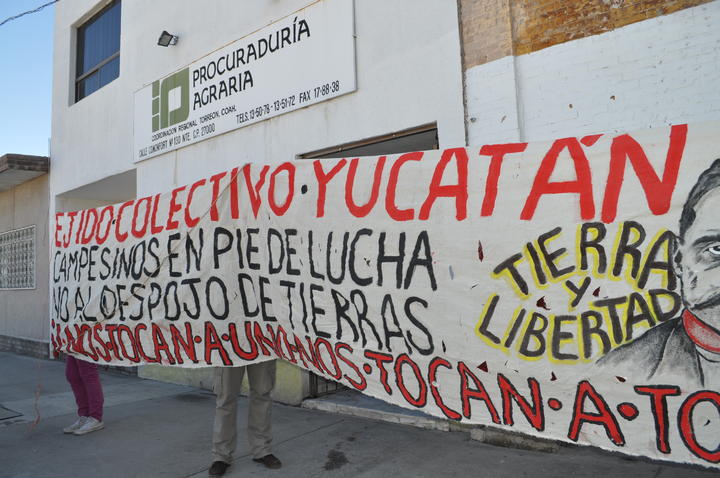 PROCURADURÍA
AGRARIA
COORDINACION REGIONAL TORREON, COAH.
CALLE COMONFORT Nº 130 NTE. C.P. 27000
TELS. 13-50-78 - 13-51-72 FAX 17-88-38
EJIDO·COLECTIVO·YUCATÁN
CAMPESINOS EN PIE DE LUCHA
NO AL DESPOJO DE TIERRAS.
NOS·TOCAN·A·UNO·NOS·TOCAN·A·TO
TIERRA
Y
LIBERTAD